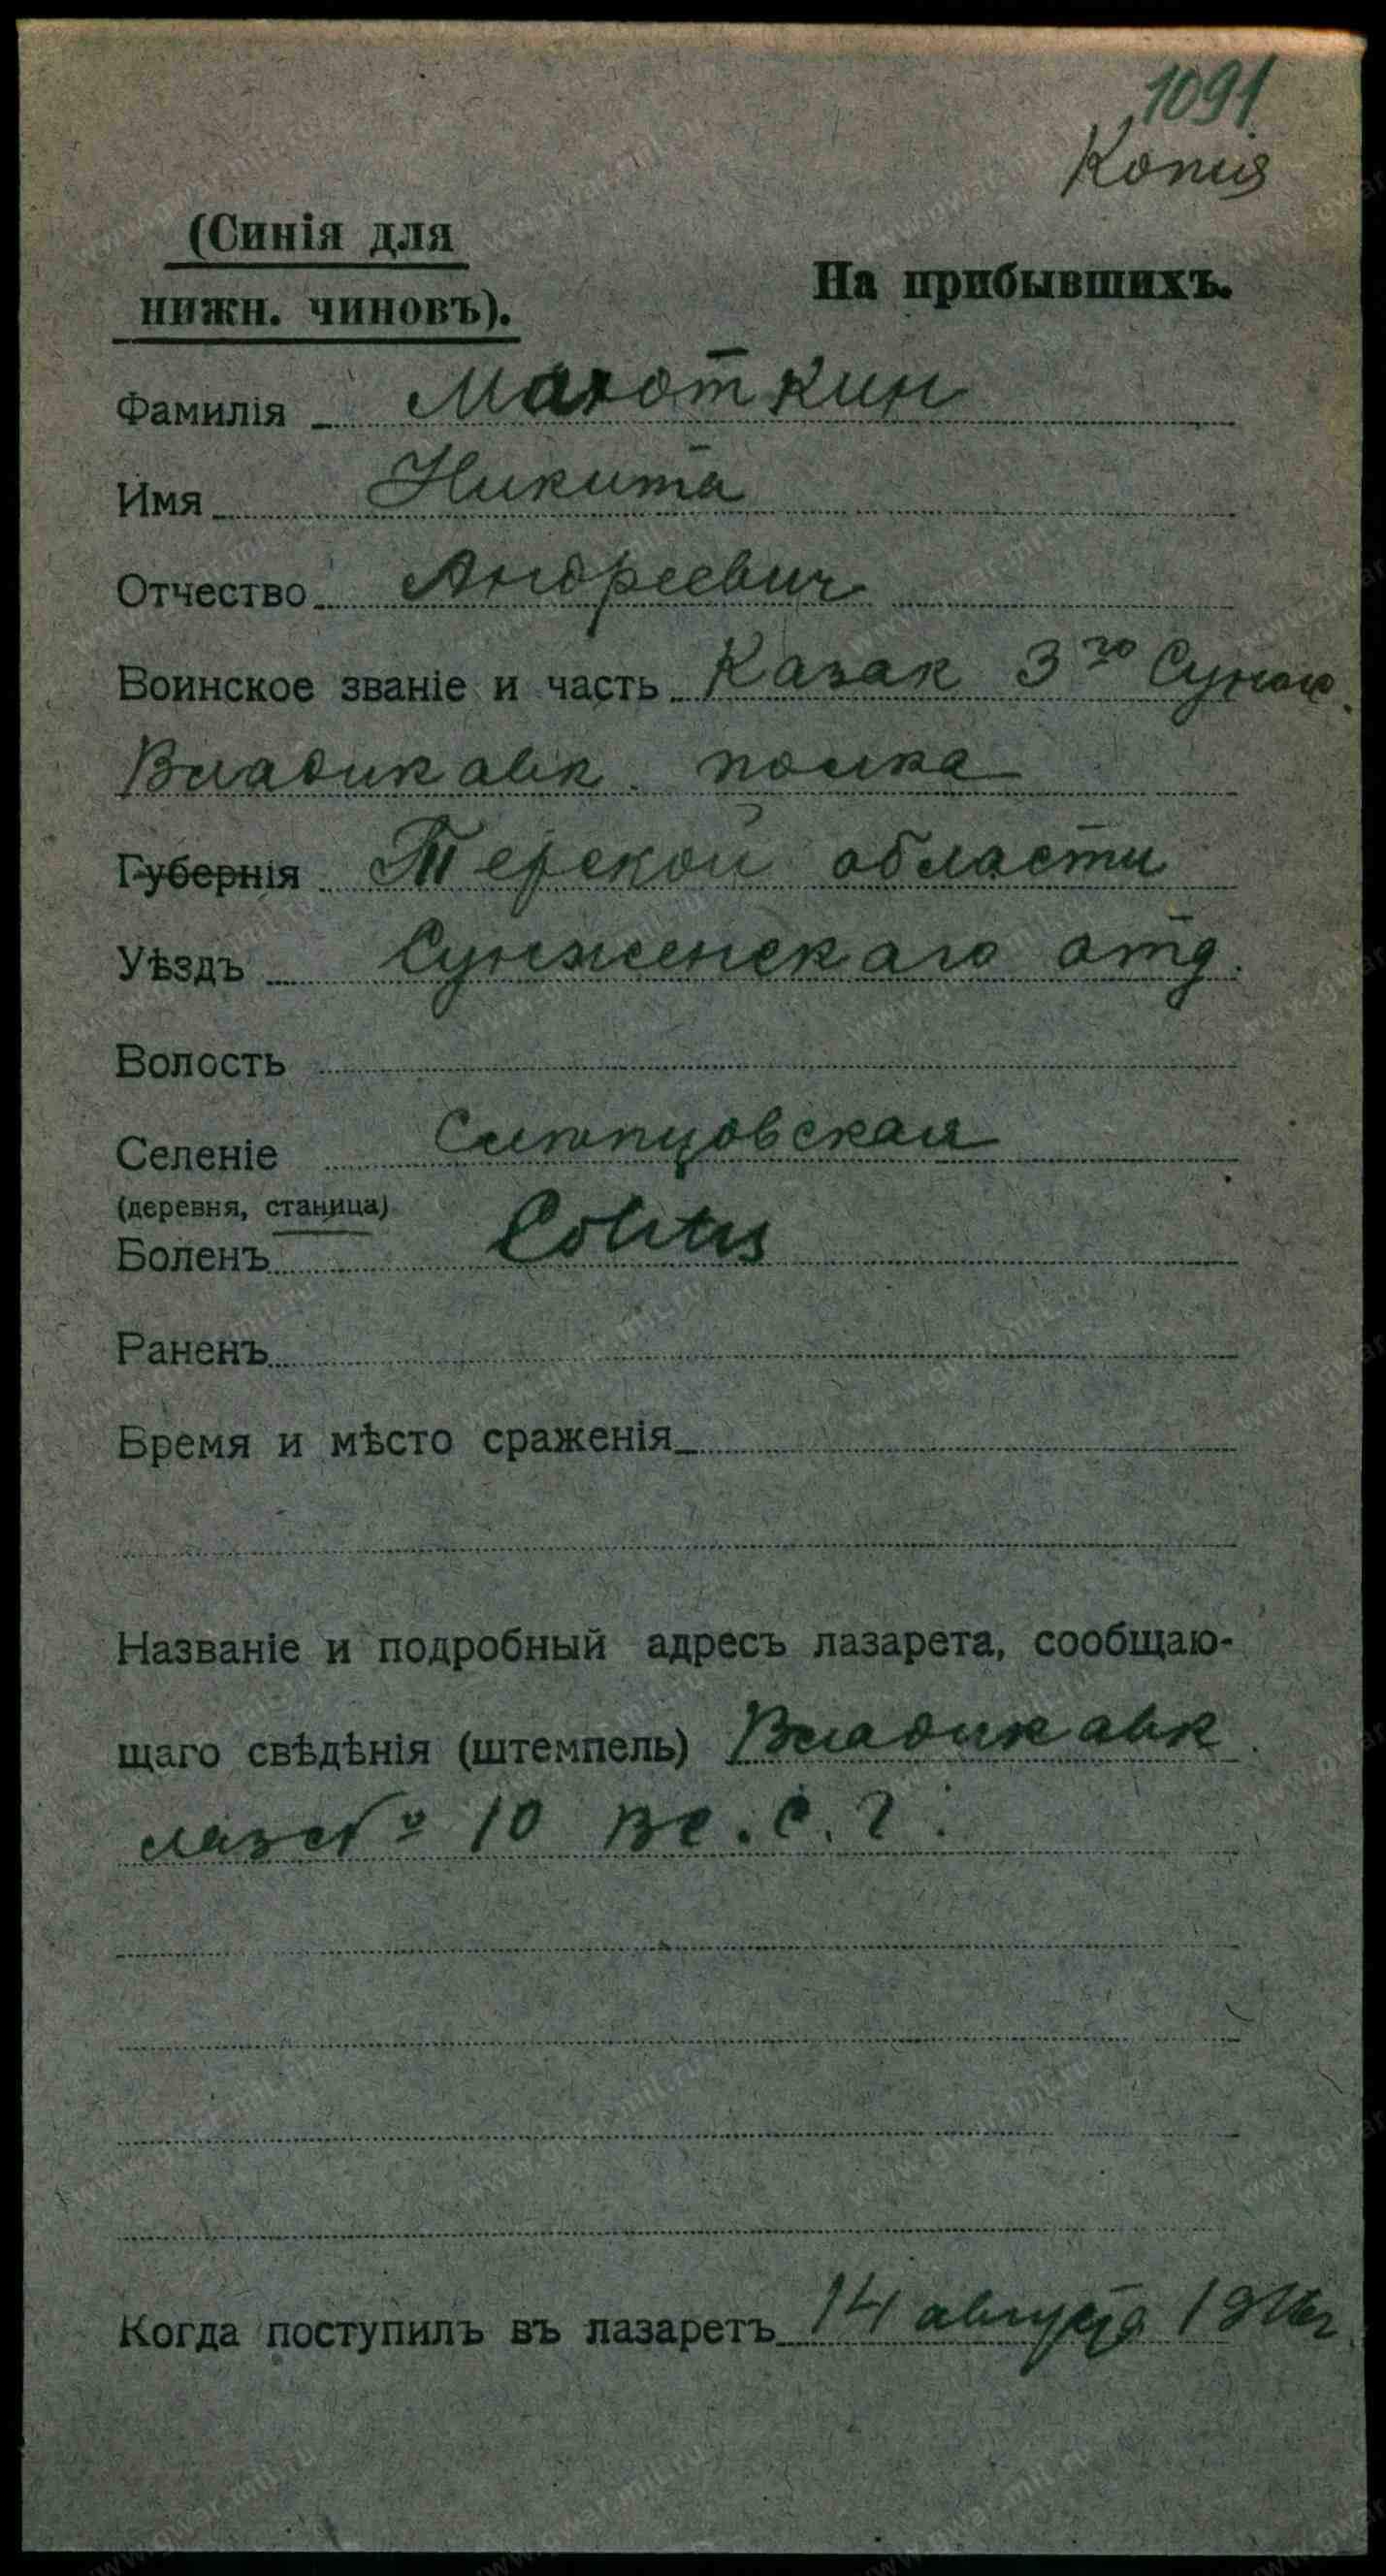 1091
Копия
(Синія для
нижн. чиновъ).
На прибывшихъ.
Фамилія Махоткин
Имя Никита
Отчество Андреевич
Воинское званіе и часть Казак 3го
Владикавк. полка
Губернія Терской области
Уѣздъ Сунженскаго отд.
Волость
Селеніе Слепцовская
(деревня, станица)
Боленъ Colitis
Раненъ
Время и мѣсто сраженія
Названіе и подробный адресъ лазарета, сообщаю-
щаго свѣдѣнія (штемпель) Владикавк.
лаз. № 10 В. С. Г.
Когда поступилъ въ лазаретъ 14 августа 1916г.